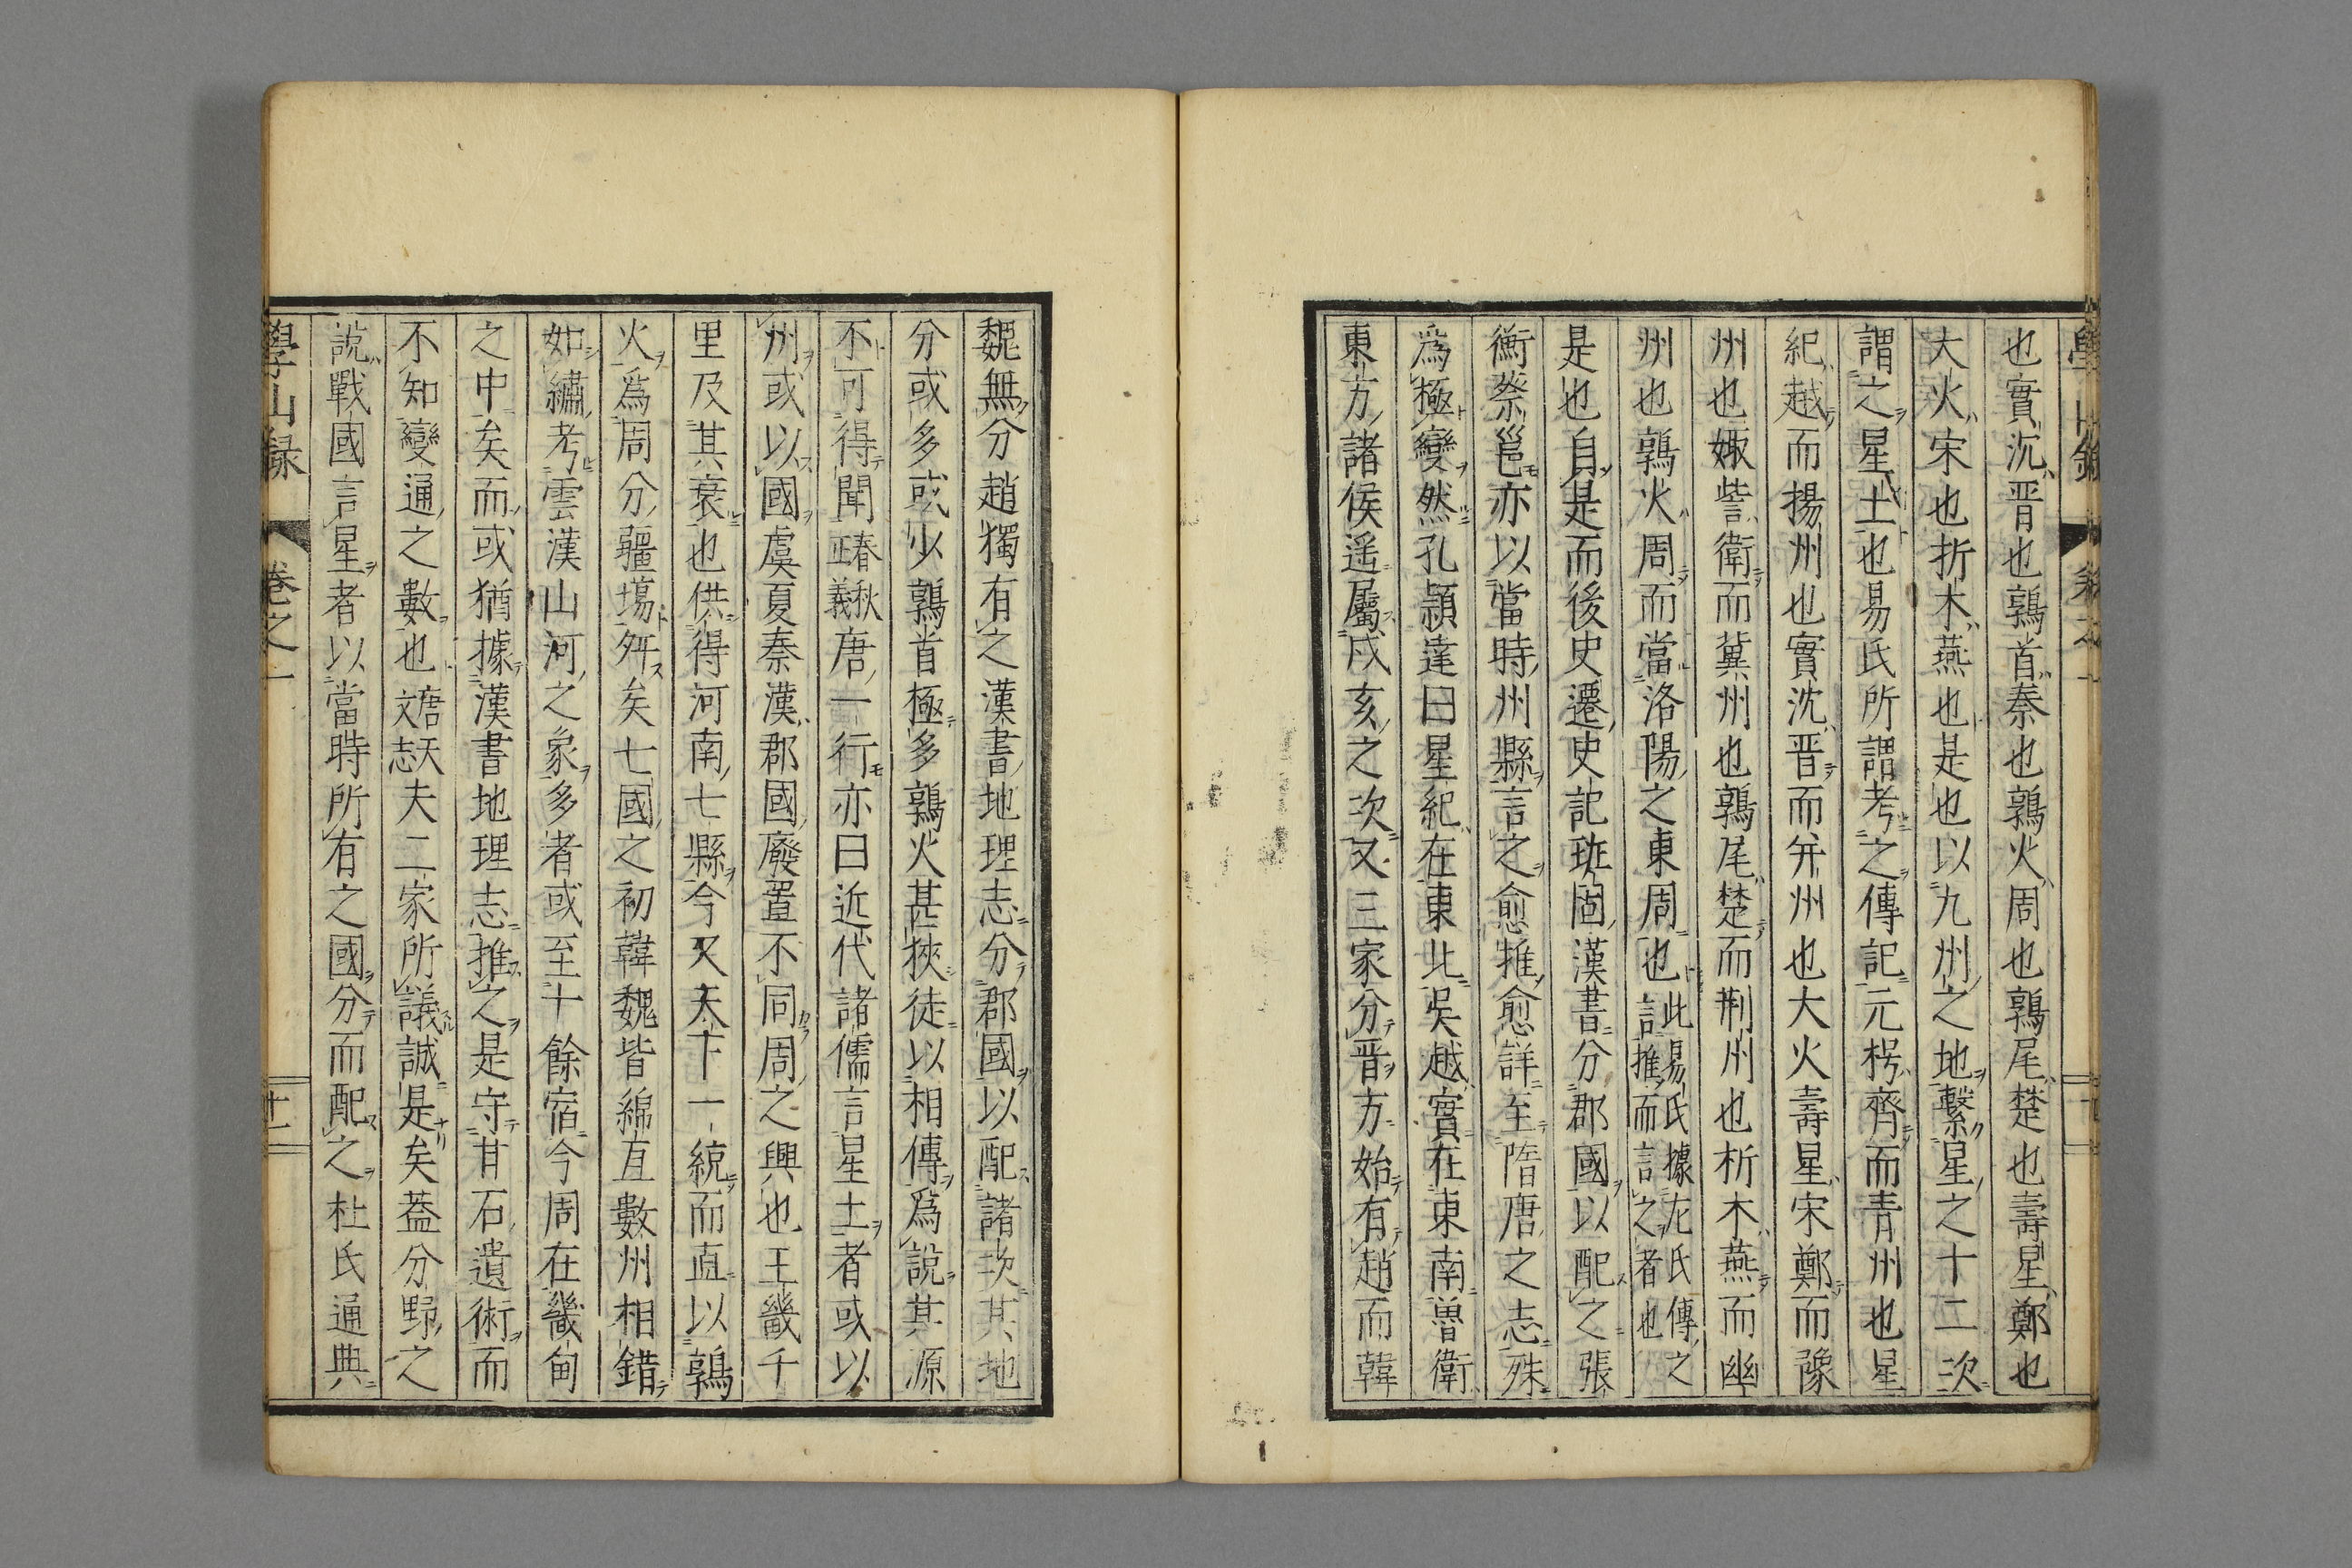 也實沉晋也鶉首秦也鶉火周也鶉尾楚也壽星鄭也
大火宋也析木燕也是也以九州之地繫星之十二次
謂之星土也易氏所謂考之傳記元枵齊而青州也星
紀越而揚州也實沈晋而并州也大火壽星宋鄭而豫
州也娵訾衛而冀州也鶉尾楚而荆州也析木燕而幽
州也鶉火周而當洛陽之東周也此易氏據左氏傳之言推而言之者也
是也自是而後史遷史記班固漢書分郡國以配之張
衡蔡邕亦以當時州縣言之愈推愈詳至隋唐之志殊
爲極變然孔頴達曰星紀在東北吳越實在東南魯衛
東方諸侯遥屬戌亥之次又三家分晋方始有趙而韓
魏無分趙獨有之漢書地理志分郡國以配諸次其地
分或多或少鶉首極多鶉火甚狹徒以相傳爲說其源
不可得聞春秋正義唐一行亦曰近代諸儒言星土者或以
州或以國虞夏秦漢郡國廢置不同周之興也王畿千
里及其衰也供得河南七縣今又天下一統而直以鶉
火爲周分疆場舛矣七國之初韓魏皆綿亘數州相錯
如繡考雲漢山河之象多者或至十餘宿今周在畿甸
之中矣而或猶據漢書地理志推之是守甘石遺術而
不知變通之數也唐天文志夫二家所議誠是矣葢分野之
說戰國言星者以當時所有之國分而配之杜氏通典
學山録 卷之一 十二